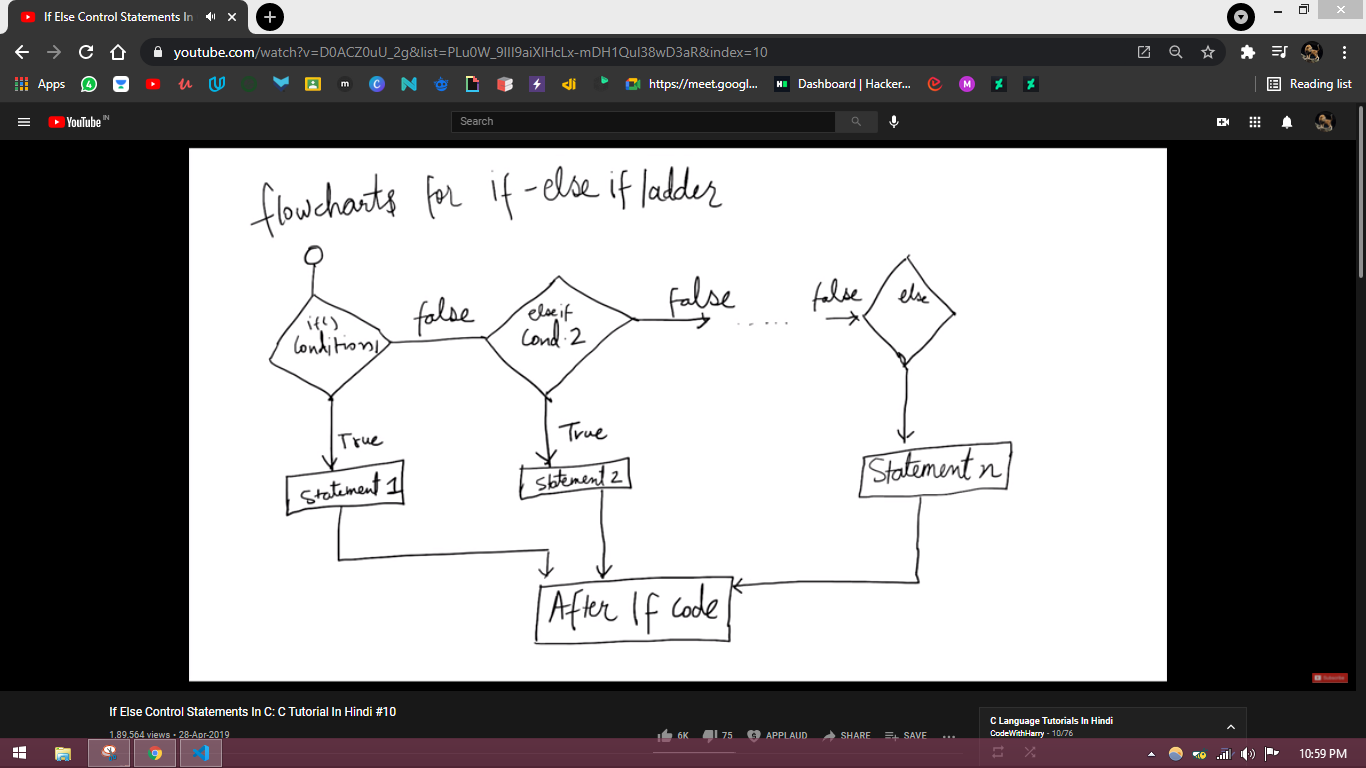 If Else Control Statements In
youtube.com/watch?v=D0ACZ0uU_2g&list=PLu0W_9lII9aiXlHcLx-mDH1Qul38wD3aR&index=10
Apps
https://meet.googl...
Dashboard | Hacker...
Reading list
YouTube IN
Search
flowcharts for if-else if ladder
if()
Conditions1
false
else if
Cond. 2
false
......
false
else
True
True
Statement 1
Statement 2
Statement n
After If code
Subscribe
If Else Control Statements In C: C Tutorial In Hindi #10
1,89,564 views • 28-Apr-2019
6K
75
APPLAUD
SHARE
SAVE
...
C Language Tutorials In Hindi
CodeWithHarry - 10/76
10:59 PM